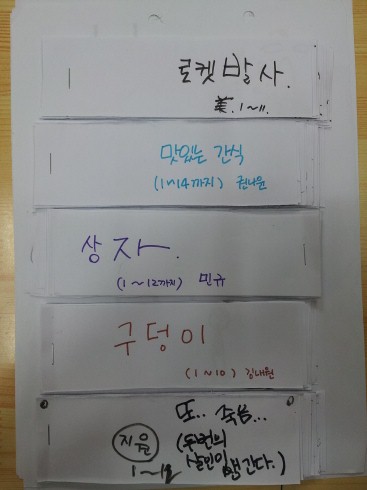 로켓발사.
美. 1~11.
맛있는 간식
(1~14까지) 권나윤
상자.
(1~12까지) 민규
구덩이
(1~10) 김내원
또.. 죽음...
지율 (두번의
1~12 살인이 생긴다.)